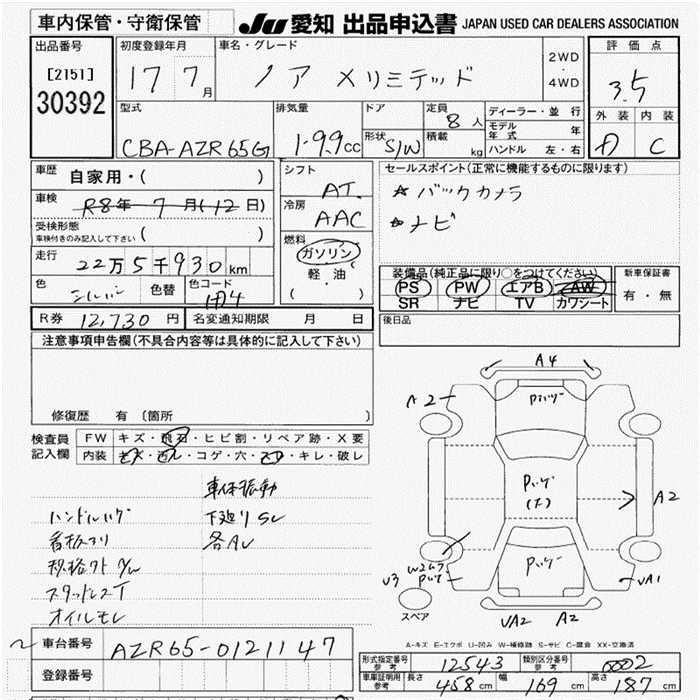 車内保管・守衛保管 JU 愛知 出品申込書 JAPAN USED CAR DEALERS ASSOCIATION
出品番号 初度登録年月 車名・グレード 評価点
[2151] 17 7月 ノア メリミテッド 2WD・4WD 3.5
30392
型式 排気量 ドア 定員 8人 ディーラー・並行 外装 内装
CBA-AZR65G 1.99cc 形状 S/W 積載 kg モデル年式 年
ハンドル 左・右 C
車歴 自家用・( ) シフト AT セールスポイント(正常に機能するものに限ります)
車検 R8年 7月(12日) 冷房 AAC ☆バックカメラ
受検形態 ( ) ☆ナビ
車検付きのみ記入して下さい
走行 22万5千930km 燃料 ガソリン・軽油・( )
装備品(純正品に限り○をつけてください) 新車保証書
色 シルバー 色替 色コード 1F4 PS PW エアB AW 有・無
SR ナビ TV カワシート
R券 12,730円 名変通知期限 月 日 後日品
注意事項申告欄(不具合内容等は具体的に記入して下さい)
修復歴 有(箇所
検査員記入欄 FW キズ・飛石・ヒビ割・リペア跡・X要
内装 キズ・汚レ・コゲ・穴・スレ・キレ・破レ
車体振動
ハンドルハゲ 下廻りSレ
看板アリ 各Aレ
スタットレスT
オイルモレ
A4
A2
Pハゲ
Pハゲ
A2
Pハゲ
U3 W2ムラ Pハゲ
UA1
スペア
UA2 A2
A-キズ E-エクボ U-凹み W-補修跡 S-サビ C-腐食 XX-交換済
車台番号 AZR65-0121147
登録番号
形式指定番号 参考 12543 類別区分番号 参考 0002
車庫証明用 参考 長さ 458cm 幅 169cm 高さ 187cm